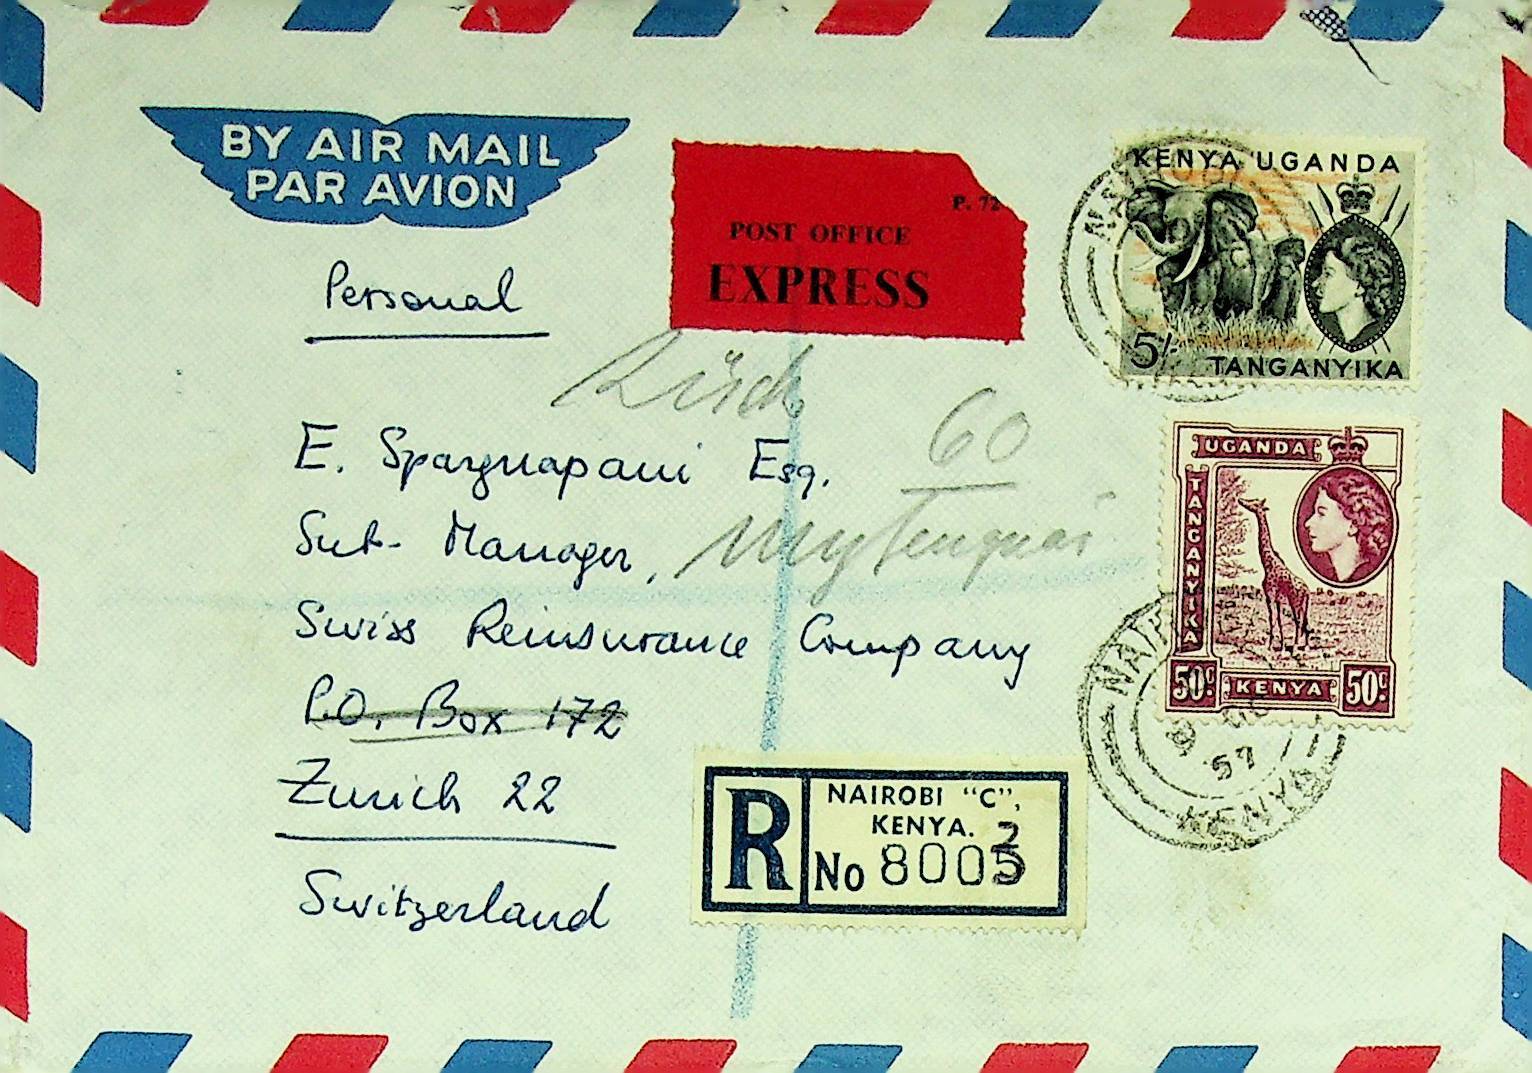 BY AIR MAIL
PAR AVION
P. 72
POST OFFICE
EXPRESS
Personal
KENYA UGANDA
5/-
TANGANYIKA
60
E. Spargnapani Esq.
Sub-Manager,
Swiss Reinsurance Company
P.O. Box 172
Zurich 22
Switzerland
UGANDA
TANGANYIKA
50c. KENYA 50c.
NAIROBI
57
KENYA
R
NAIROBI "C",
KENYA.
No 8005